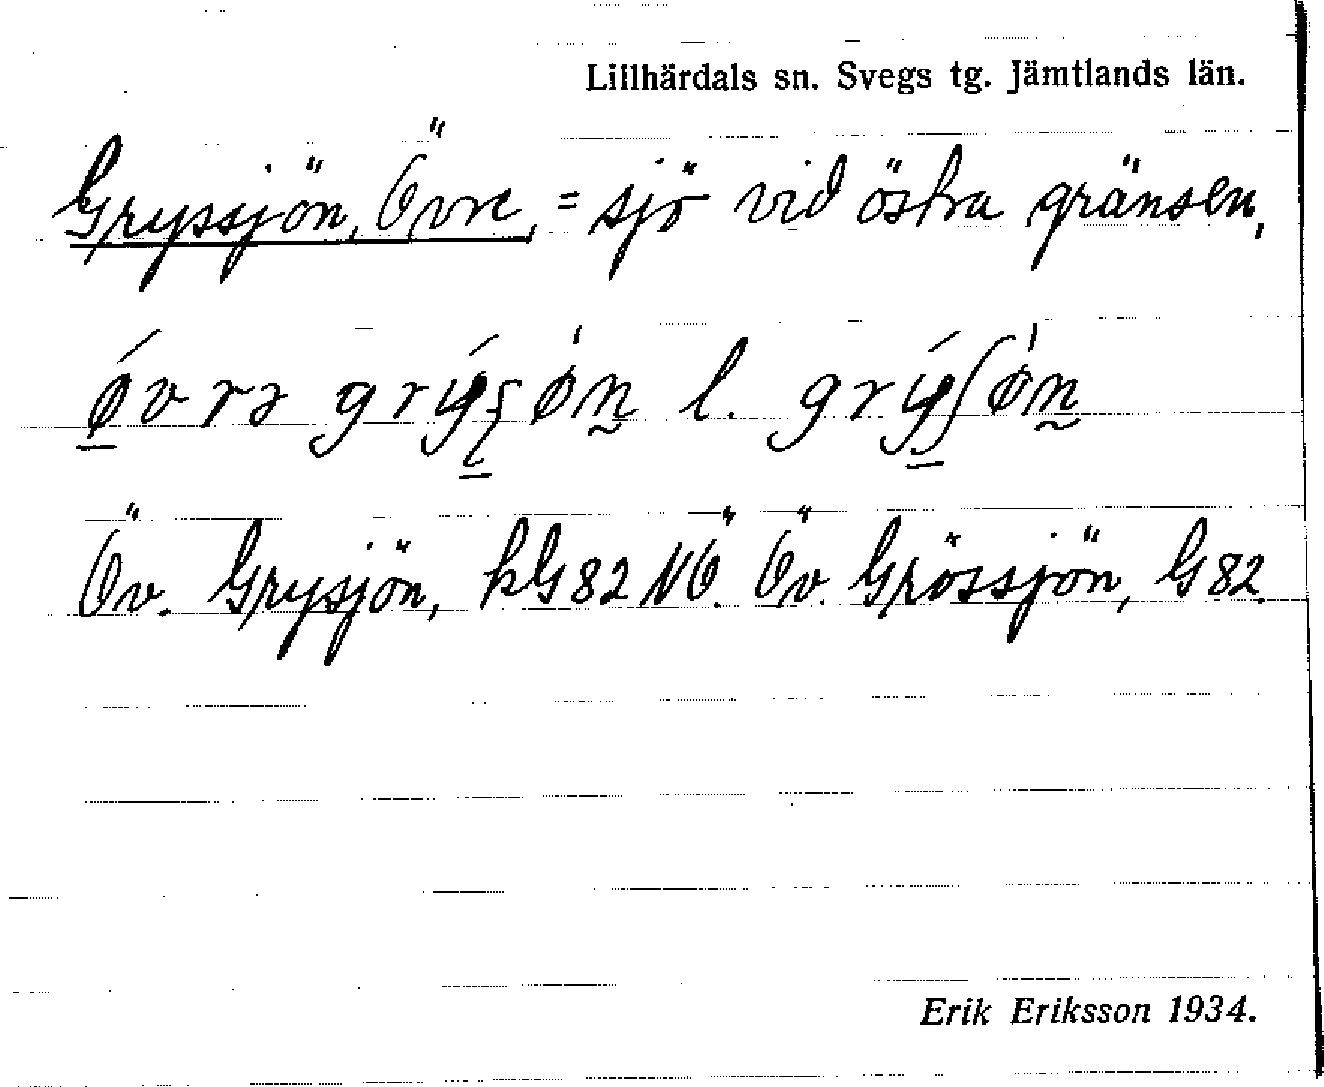 Lillhärdals sn. Svegs tg. Jämtlands län.
Gryssjön, Övre, = sjö vid östra gränsen,
l.
Öv. Grysjön, kG82 NÖ. Öv. Grössjön, G82.
Erik Eriksson 1934.